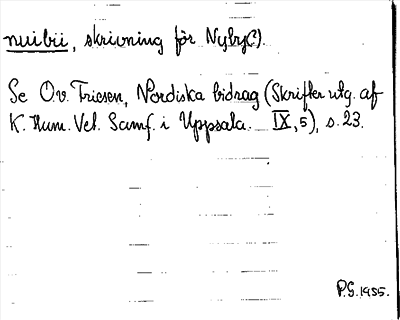 nuibii, skrivning för Nyby(?).
Se O.v. Friesen, Nordiska bidrag (Skrifter utg. af
K. Hum. Vet. Samf. i Uppsala. IX,5), s. 23.
P.G. 1955.